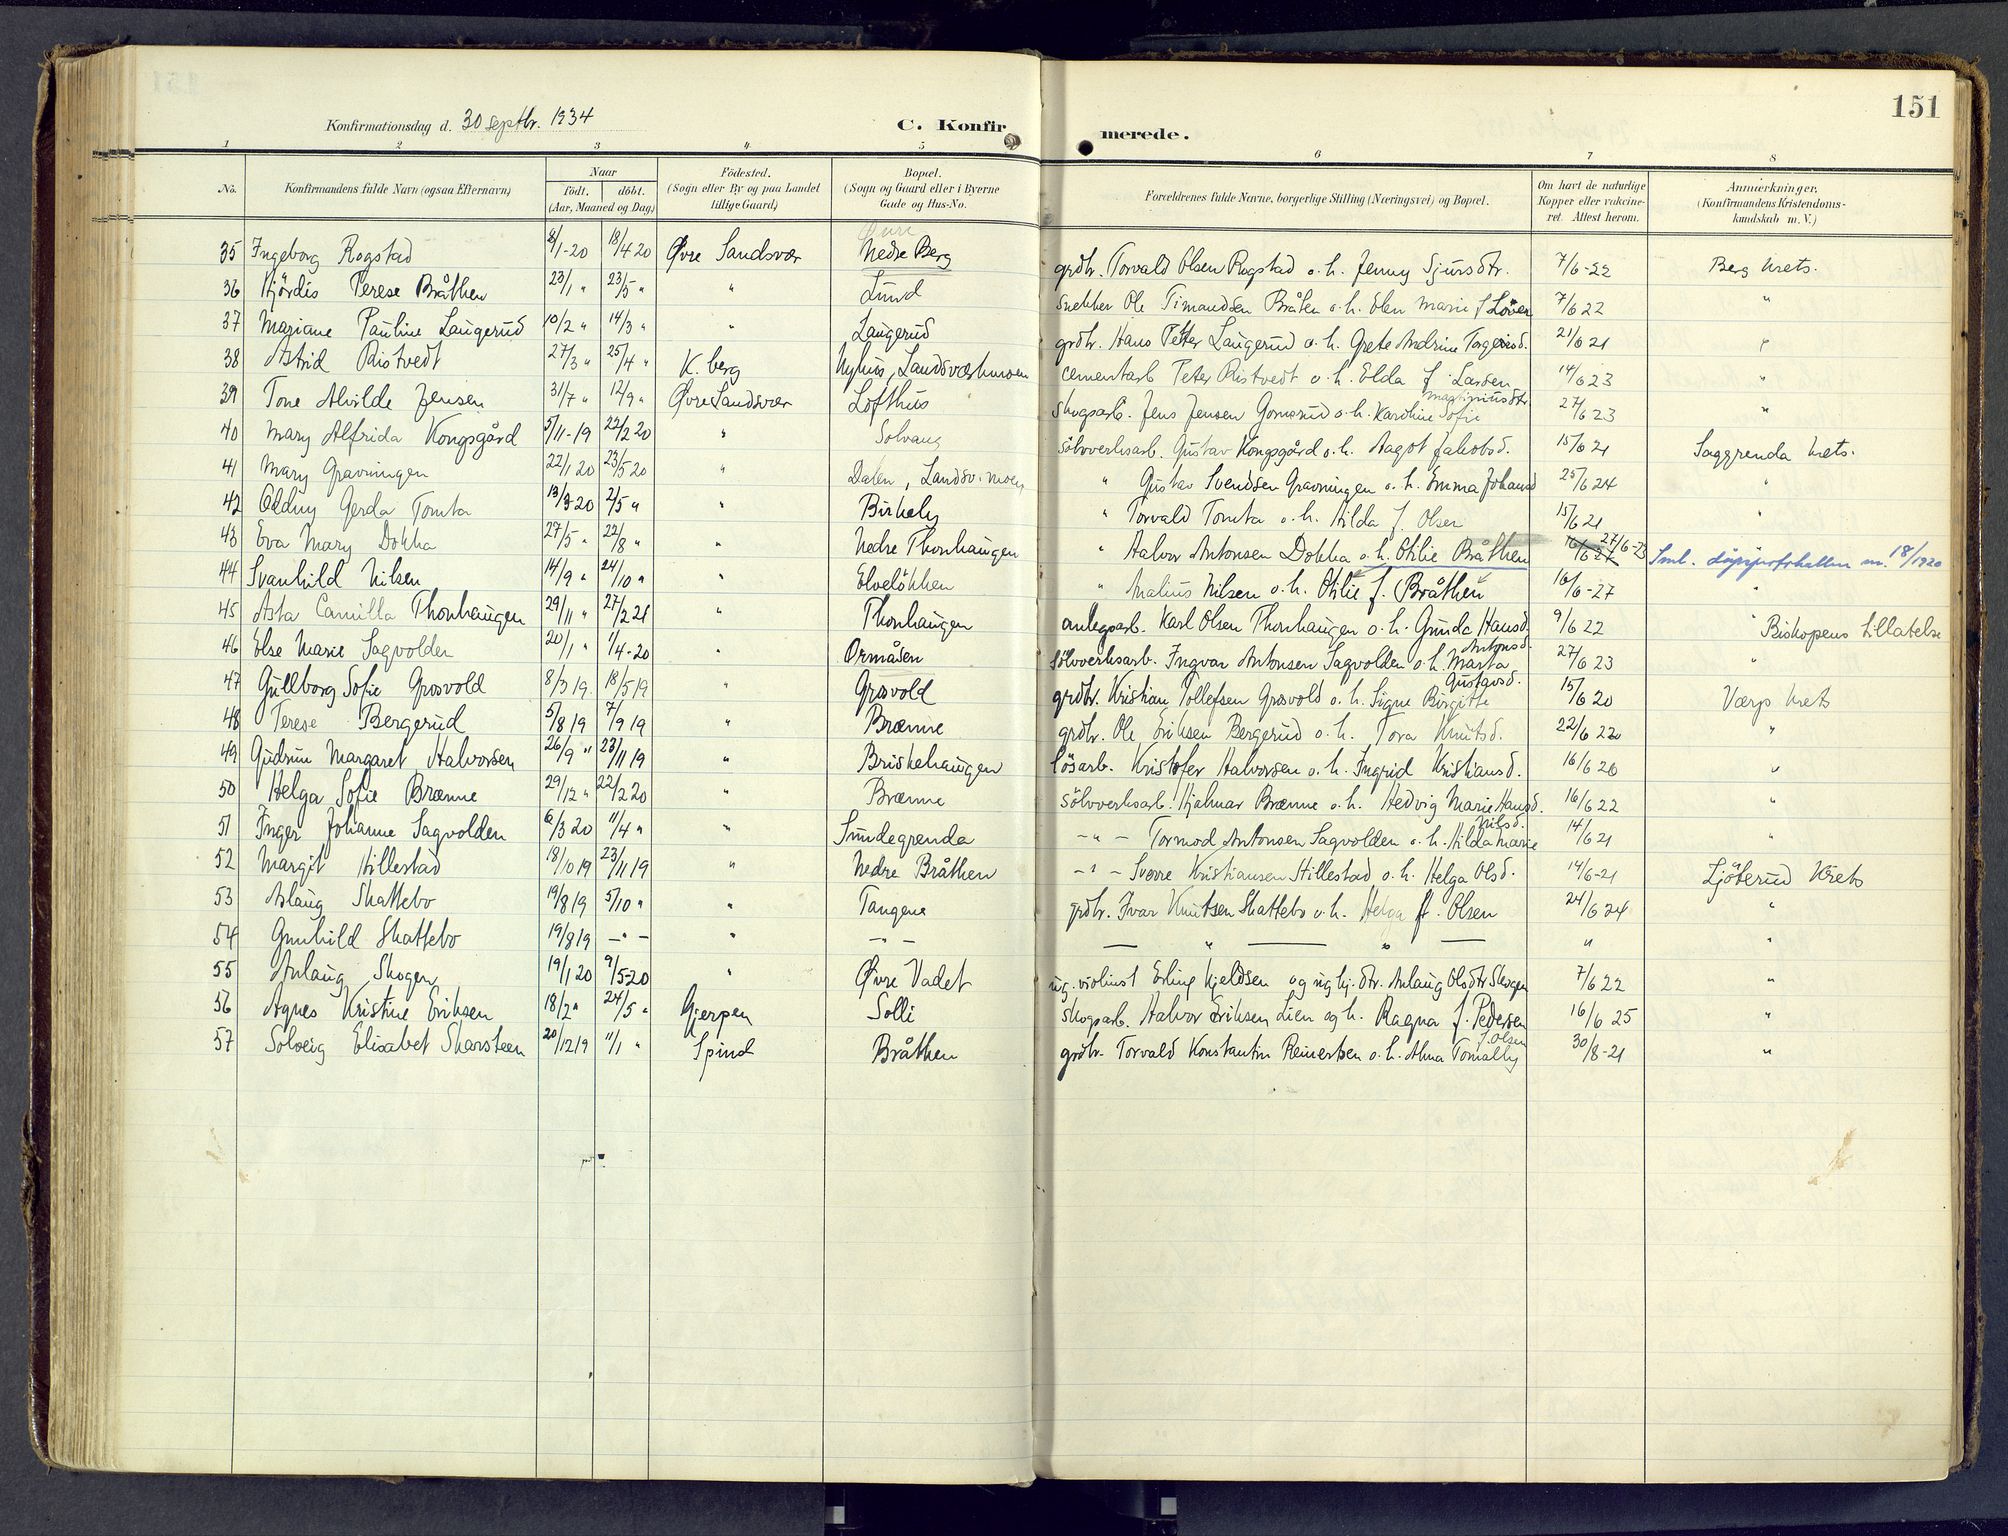 151
Konfirmationsdag d. 30 septbr. 1934 C. Konfirmerede.
1 2 3 4 5 6 7 8
No. Konfirmandens fulde Navn (ogsaa Efternavn) Naar födt. döbt. (Aar, Maaned og Dag) Födested. (Sogn eller By og paa Landet tillige Gaard) Bopæl. (Sogn og Gaard eller i Byerne Gade og Hus-No. Forældrenes fulde Navne, borgerlige Stilling (Næringsvei) og Bopæl. Om havt de naturlige Kopper eller vakcineret. Attest herom. Anmærkninger. (Konfirmandens Kristendomskundskab m. V.)
35 Ingeborg Rogstad 8/1-20 18/4 20 Øvre Sandsvær Øvre Nedre Berg grdbr. Torvald Olsen Rogstad o. h. Jenny Sjursdtr. 7/6-22 Berg krets.
36 Hjördis Terese Bråthen 23/1 " 23/5 " " Lund snekker Ole Timandsen Bråten o. h. Elen Marie f. Löver 7/6 22 "
37 Mariane Pauline Laugerud 10/2 " 14/3 " " Laugerud grdbr. Hans Petter Laugerud o. h. Grete Andrine Torgersd. 21/6 21 "
38 Astrid Ristvedt 27/3 " 25/4 " K. berg Nyhus, Landsværkmoen cementarb. Peter Ristvedt o. h. Elda f. Larsen 14/6 23 "
39 Tone Alvilde Jensen 31/7 " 12/9 " Øvre Sandsvær Lofthus skogsarb. Jens Jensen Gomsrud o. h. Karoline Sofie Martiniusdtr. 27/6 23 "
40 Mary Alfrida Kongsgård 5/11-19 22/2 20 " Solvang sölvverksarb. Gustav Kongsgård o. h. Aagot Jakobsd. 15/6 21 Saggrenda krets.
41 Mary Gravningen 22/1 20 23/5 20 " Dalen, Landsv. moen " Gustav Svendsen Gravningen o. h. Emma Johansd 25/6 24 "
42 Oddny Gerda Tomta 13/3-20 2/5 " " Birkely " Torvald Tomta o. h. Hilda f. Olsen 15/6 21 "
43 Eva Mary Dokka 27/5 " 22/8 " " Nedre Thonhaugen " Halvor Antonsen Dokka o. h. Otilie Bråthen 27/6-23 Sml. dåpsprotokollen nr. 18/1920
44 Svanhild Nilsen 14/9 " 24/10 " " Elvelökken " Malius Nilsen o. h. Otilie f. Bråthen 16/6-27 "
45 Asta Camilla Thonhaugen 29/11 " 27/2 21 " Thonhaugen anlegsarb. Karl Olsen Thonhaugen o. h. Gunda Hansd. 9/6 22 " Biskopens tillatelse
46 Else Marie Sagvolden 20/1 " 1/4-20 " Ormåsen sölvverksarb. Ingvar Antonsen Sagvolden o. h. Marta Antonsd. 27/6 23 "
47 Gullborg Sofie Grosvold 8/3 19. 18/5 19 " Grosvold grdbr. Kristian Tollefsen Grosvold o. h. Signe Birgitte Gustavsd. 15/6 20 Værp krets
48 Terese Bergerud 5/8 19 7/9 19 " Brænne grdbr. Ole Eriksen Bergerud o. h. Tora Knutsd. 22/6 22 "
49 Gudrun Margaret Halvorsen 26/9 " 23/11 19 " Briskehaugen lösarb. Kristofer Halvorsen o. h. Ingrid Kristiansd. 16/6 20 "
50 Helga Sofie Brænne 29/12 " 22/2 20 " Brænne sölvverksarb. Hjalmar Brænne o. h. Hedvig Marie Hansd. 16/6 22 "
51 Inger Johanne Sagvolden 6/3 20 11/4 " " Sundegrenda - " - Tormod Antonsen Sagvolden o. h. Hilda Marie Nilsd. 14/6 21 "
52 Margit Hillestad 18/10 19 23/11 19 " Nedre Bråthen - " - Sverre Kristiansen Hillestad o. h. Helga Olsd. 14/6-21 Ljöterud Krets
53 Aslaug Skattebo 19/8 19 5/10 " " Tangene grdbr. Ivar Knutsen Skattebo o. h. Helga f. Olsen 24/6 24 "
54 Gunhild Skattebo 19/8 19 - " - " - " - — " — " — " "
55 Anlaug Skogen 19/1 20 9/5-20 " Øvre Vadet ug. violinist Erling Kjeldsen og ug. hj. dtr. Anlaug Olsdtr Skogen 7/6 22 "
56 Agnes Kristine Eriksen 18/2 " 24/5 " Gjerpen Solli skogsarb. Halvor Eriksen Lien og h. Ragna f. Pedersen 16/6 25 "
57 Solveig Elisabet Skarsteen 20/12 19 11/1 " Spind Bråthen grdbr. Torvald Konstantin Reinertsen o. h. Alma Tomally f. Olsen 30/8-21 "